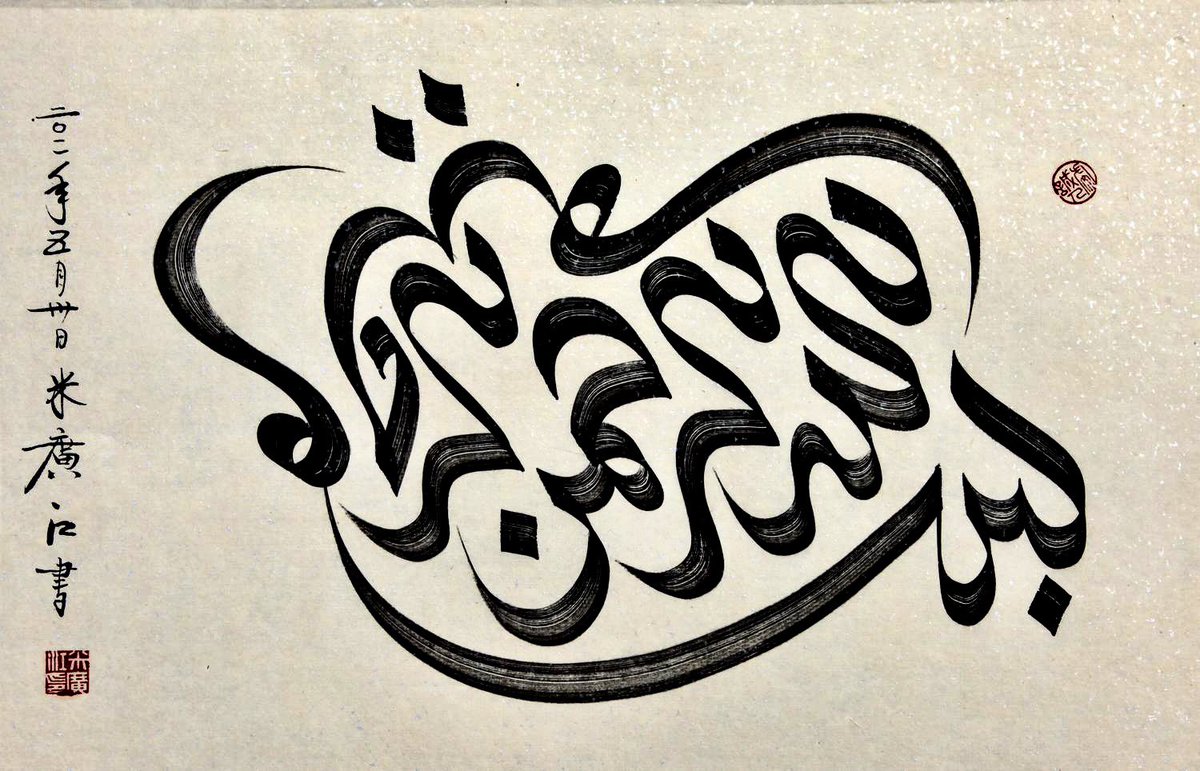 بسم الله الرحمن الرحيم
二〇一一年五月卅日 米廣江書
米廣江印